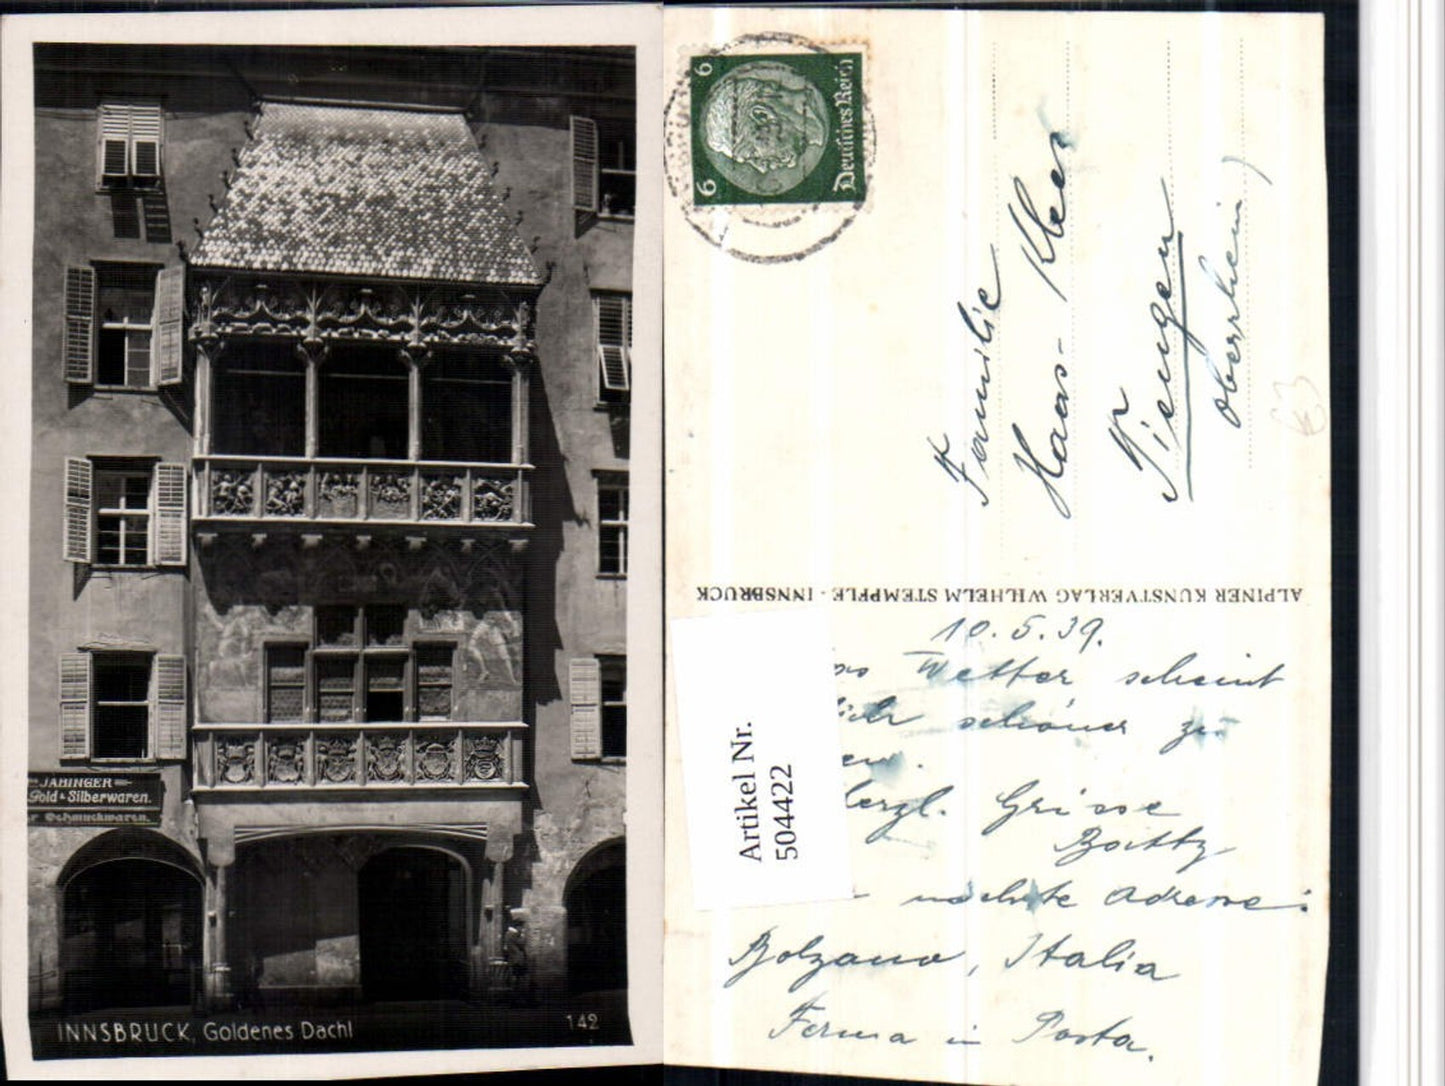 JABINGER
Gold & Silberwaren.
Schmuckwaren.
INNSBRUCK, Goldenes Dachl
142
6
6
Deutsches Reich
Familie
Haas-Klees
Tiengen
Oberrhein)
ALPINER KUNSTVERLAG WILHELM STEMPFLE - INNSBRUCK
Artikel Nr.
504422
10.5.39.
Wetter scheint
schöner zu
Herzl. Grüsse
nächste Adresse:
Bolzano, Italia
Ferma in Posta.